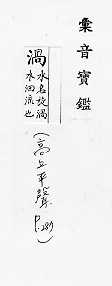 彙音寶鑑
渦
水名旋渦
水洄流也
(高上平聲
P.289)